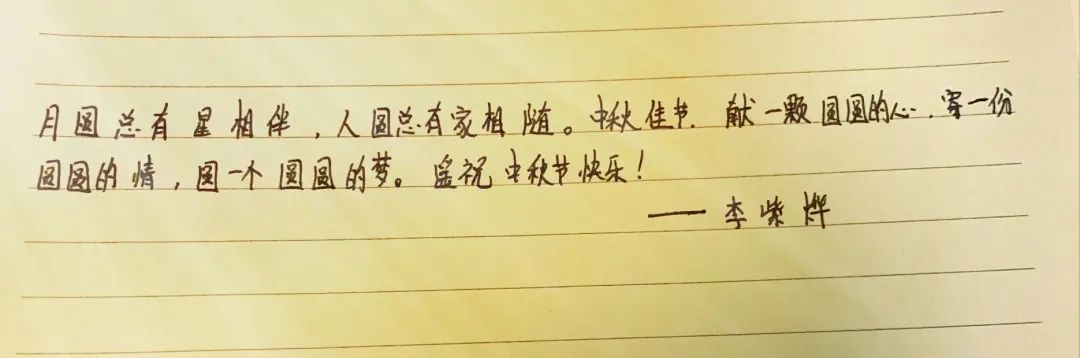 月圆总有星相伴，人圆总有家相随。中秋佳节，献一颗圆圆的心，寄一份
圆圆的情，圆一个圆圆的梦。遥祝中秋节快乐！
——李紫烨